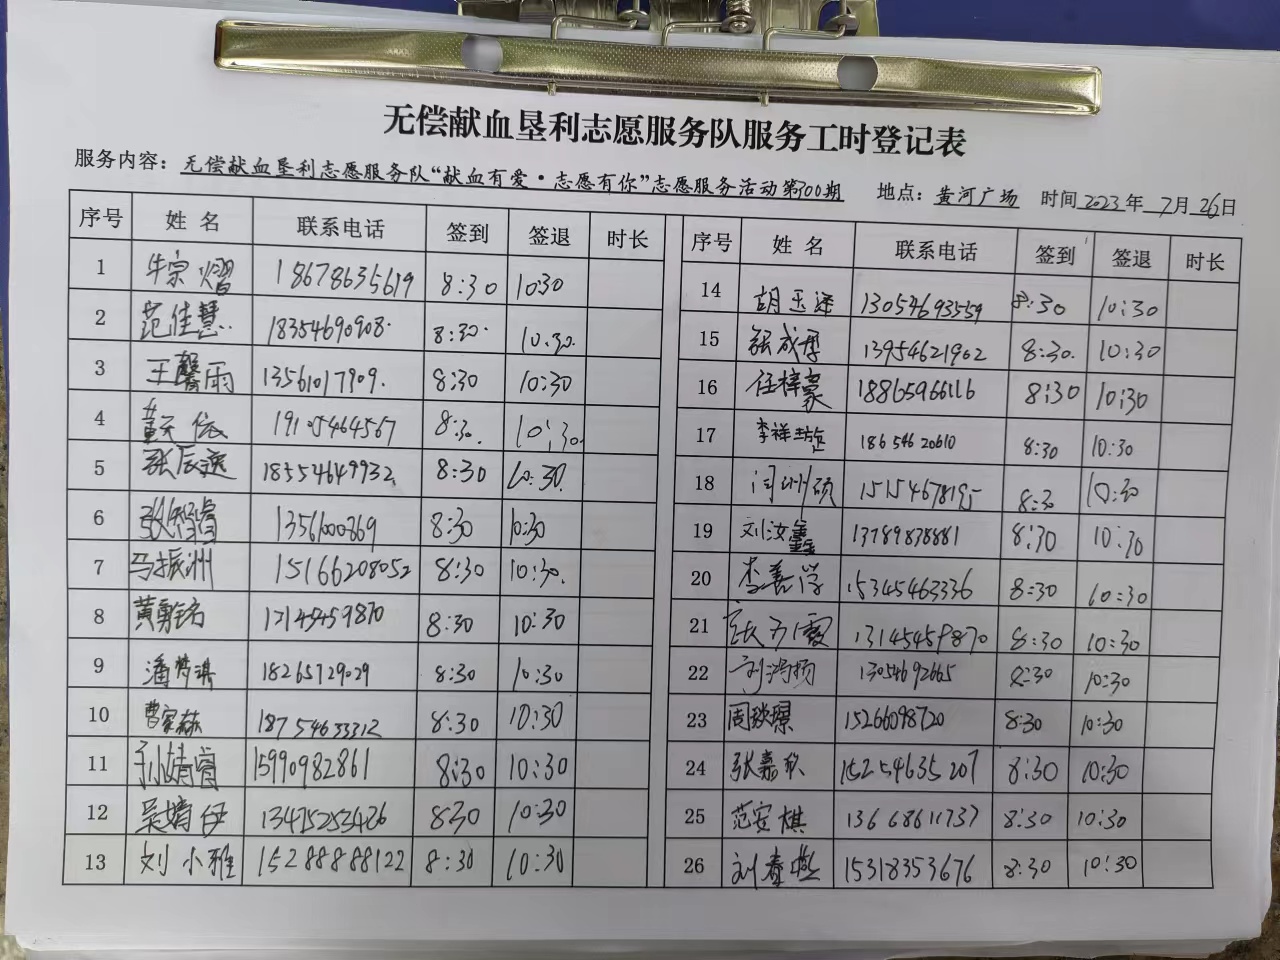 无偿献血垦利志愿服务队服务工时登记表
服务内容：无偿献血垦利志愿服务队“献血有爱·志愿有你”志愿服务活动第300期 地点：黄河广场 时间2023年7月26日
序号 姓名 联系电话 签到 签退 时长
1 牛宗熠 18678635619 8:30 10:30
2 范佳慧 18354690908 8:30 10:30
3 王馨雨 13561017909 8:30 10:30
4 董天依 19105464567 8:30 10:30
5 张辰逸 18554649932 8:30 10:30
6 张智睿 8:30 10:30
7 马振洲 15166208052 8:30 10:30
8 黄勇铭 8:30 10:30
9 潘梦琪 18265729029 8:30 10:30
10 曹家赫 18754633312 8:30 10:30
11 孙婧睿 15990982861 8:30 10:30
12 吴婧伊 13475253426 8:30 10:30
13 刘小雅 15288888122 8:30 10:30
序号 姓名 联系电话 签到 签退 时长
14 胡玉泽 13054693559 8:30 10:30
15 张成 13954621902 8:30 10:30
16 任梓豪 18865966116 8:30 10:30
17 李祥 18654620610 8:30 10:30
18 闫洲硕 15154678195 8:30 10:30
19 刘汝鑫 13789838881 8:30 10:30
20 李嘉学 15345463336 8:30 10:30
21 13145459870 8:30 10:30
22 刘鸿扬 13054692665 8:30 10:30
23 周琰璟 15266098720 8:30 10:30
24 张嘉 15254635207 8:30 10:30
25 范安棋 13668611737 8:30 10:30
26 刘春燕 15318353676 8:30 10:30